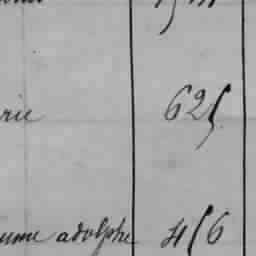 rie 625
ume adolphe 456